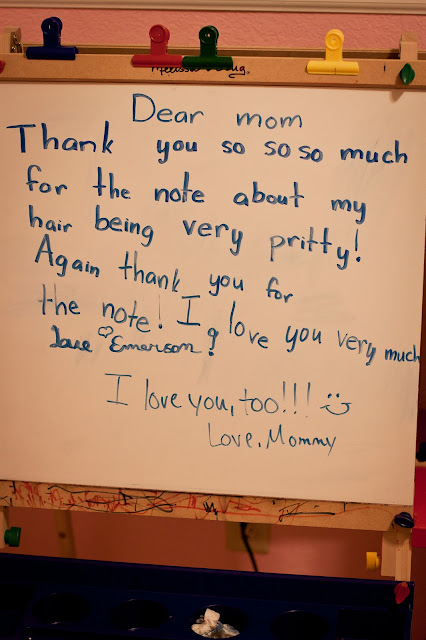 Dear mom
Thank you so so so much
for the note about my
hair being very pritty!
Again thank you for
the note! I love you very much
Love Emerson!
I love you, too!!!
Love, Mommy